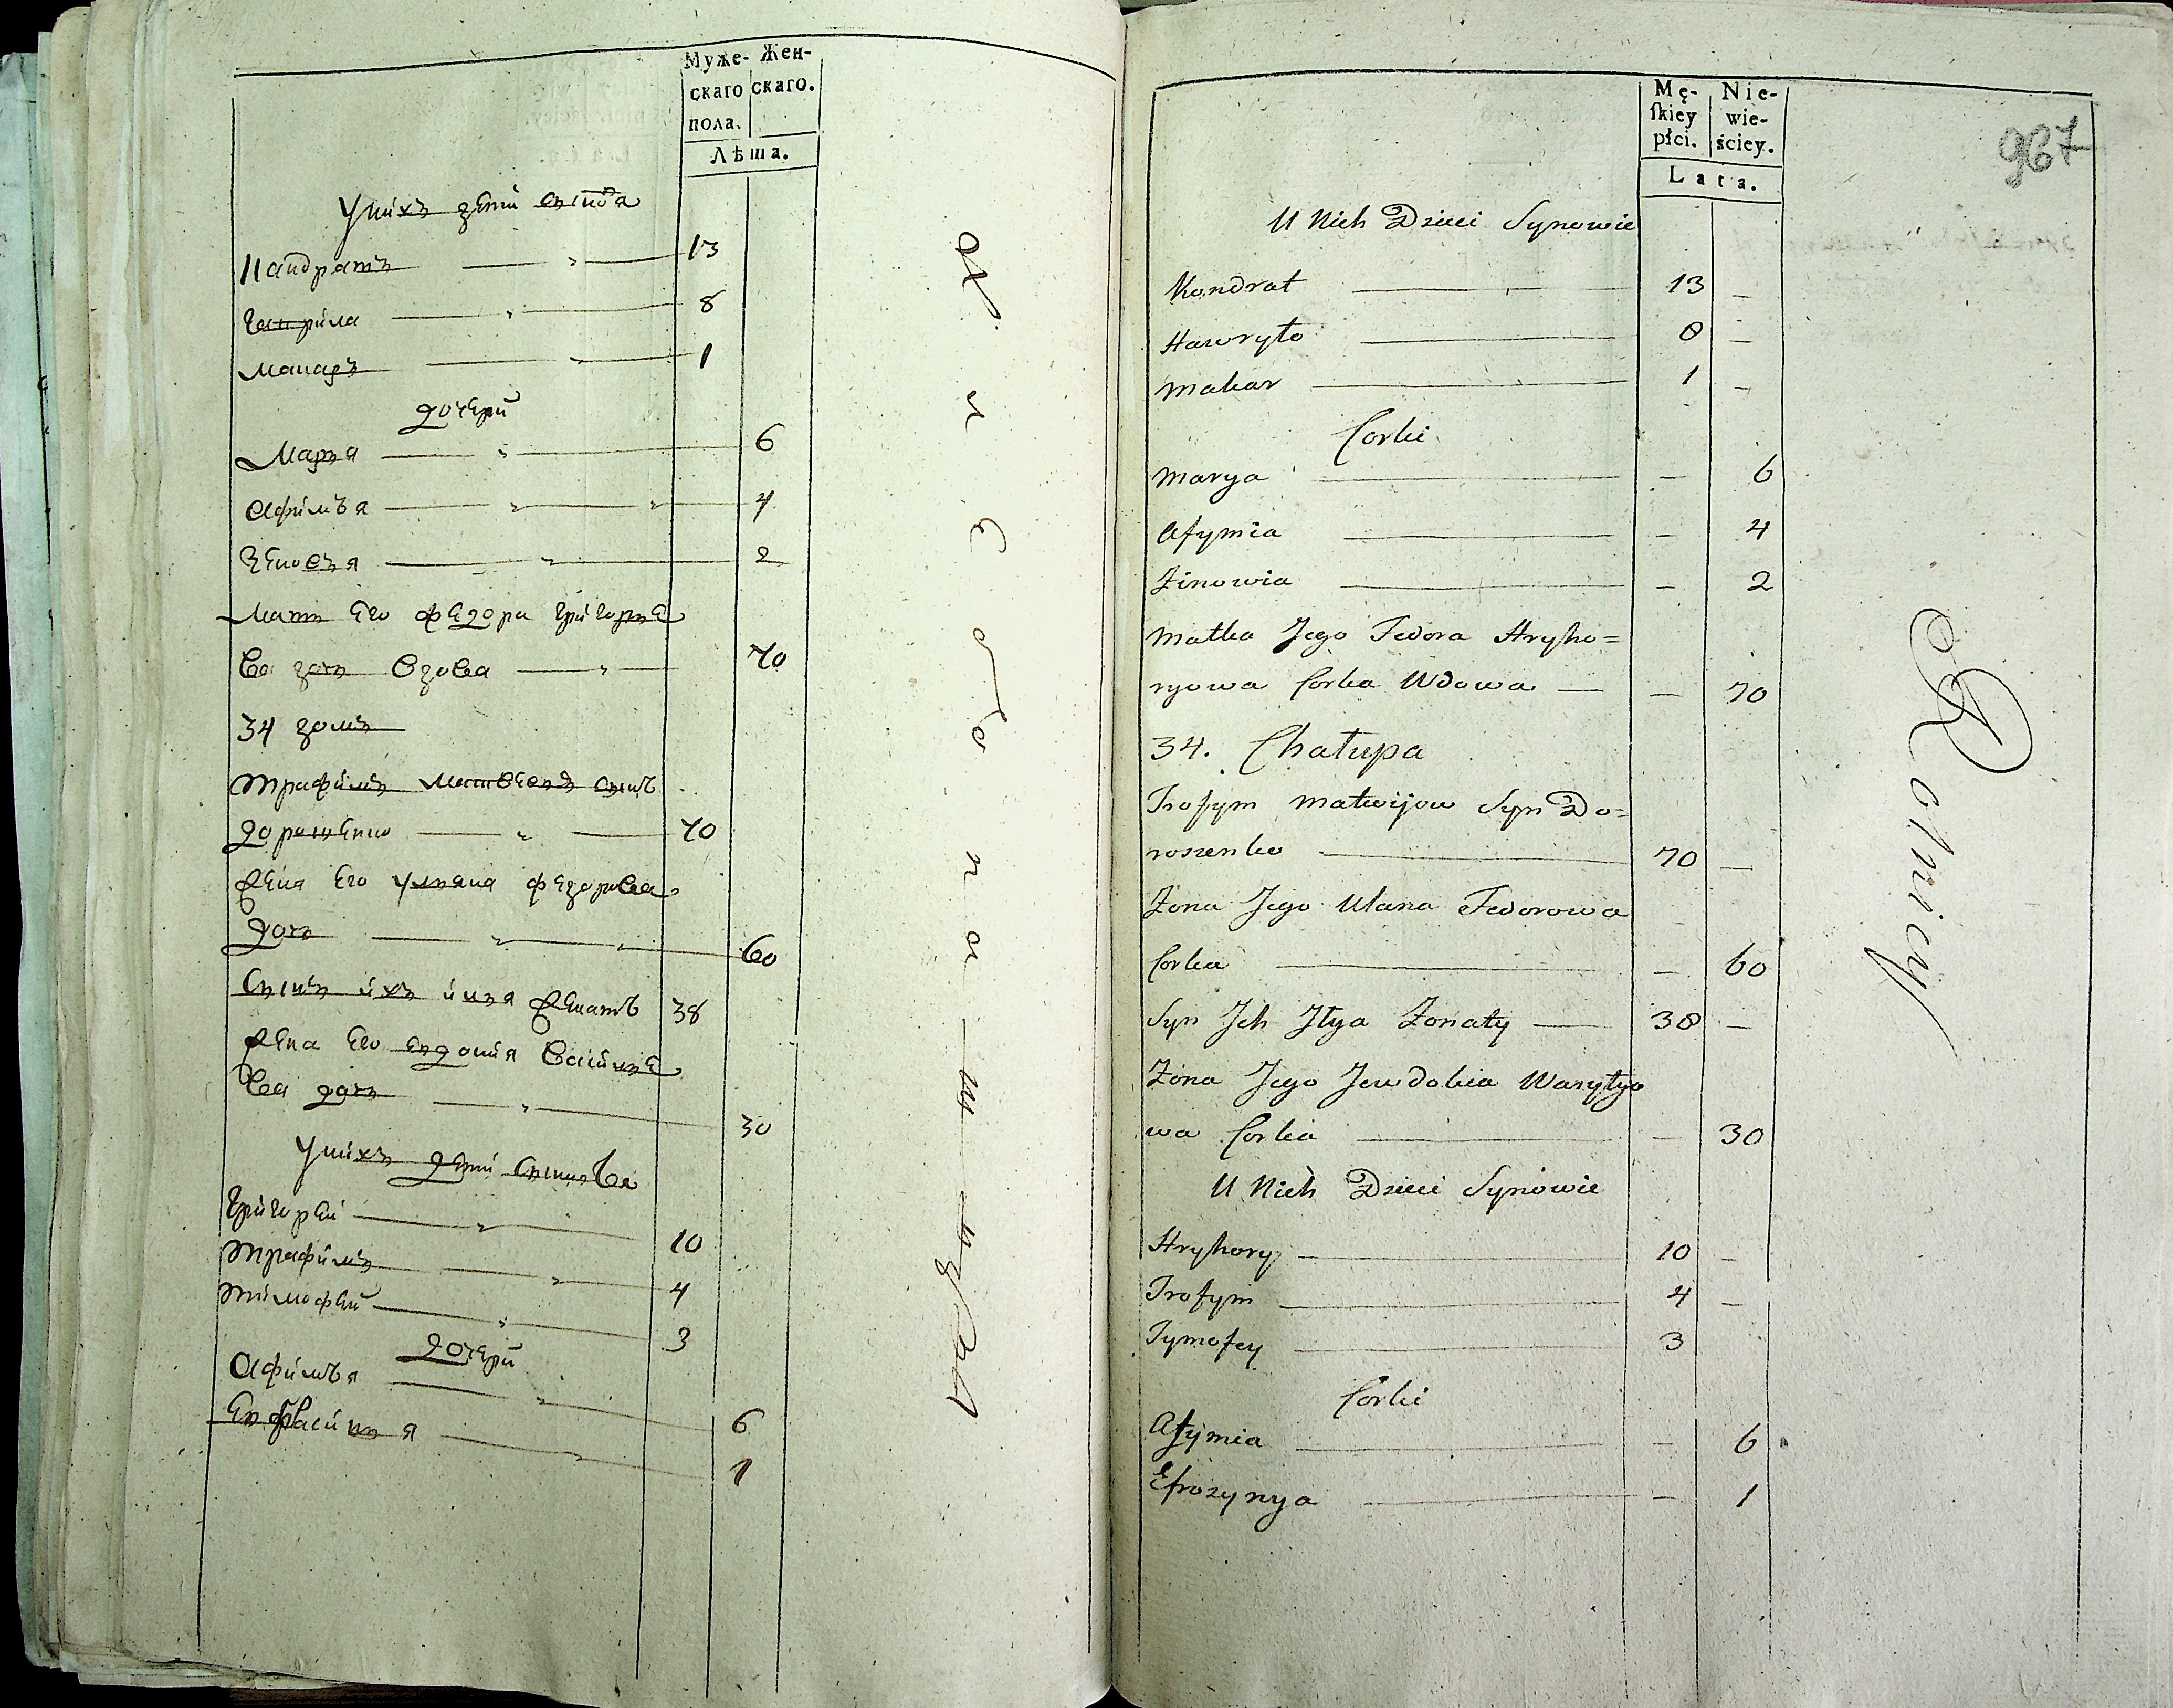 Муже- Жен-
скаго скаго.
пола.
Лѣта.
Унихъ дети сынова
Кандратъ 13
Гаврила 8
Макаръ 1
дочери
Маря 6
Афимъя 4
Зеновъя 2
Мать Его федора григорье
ва дочь вдова 70
34 домъ
Трафимъ Матвеевъ сынъ
дорошенко 70
Жена Его Ульяна федорова
дочь 60
Сынъ ихъ илья женатъ 38
Жена Его Евдокия Василье
ва дочь 30
Унихъ дети Сынова
Григорей 10
Трафимъ 4
Тимофей 3
дочери
Афимъя 6
Евфрасинъя 1
Хлебопашцы
Mę- Nie-
skiey wie-
płci. ściey.
Lata.
967
U Nich Dzieci Synowie
Kondrat 13 —
Hawryło 8 —
Makar 1 —
Corki
Marya — 6
Afymia — 4
Zinowia — 2
Matka Jego Fedora Hryho=
ryowa Corka Wdowa — 70
34. Chałupa
Trofym Matwijow Syn Do=
roszenko 70 —
Zona Jego Ulana Fedorowa
Corka — 60
Syn Jch Jlya Zonaty 38 —
Zona Jego Jewdokia Wasylyo
wa Corka — 30
U Nich Dzieci Synowie
Hryhory 10 —
Trofym 4 —
Tymofey 3
Corki
Afymia — 6
Efrozynya — 1
Rolnicy